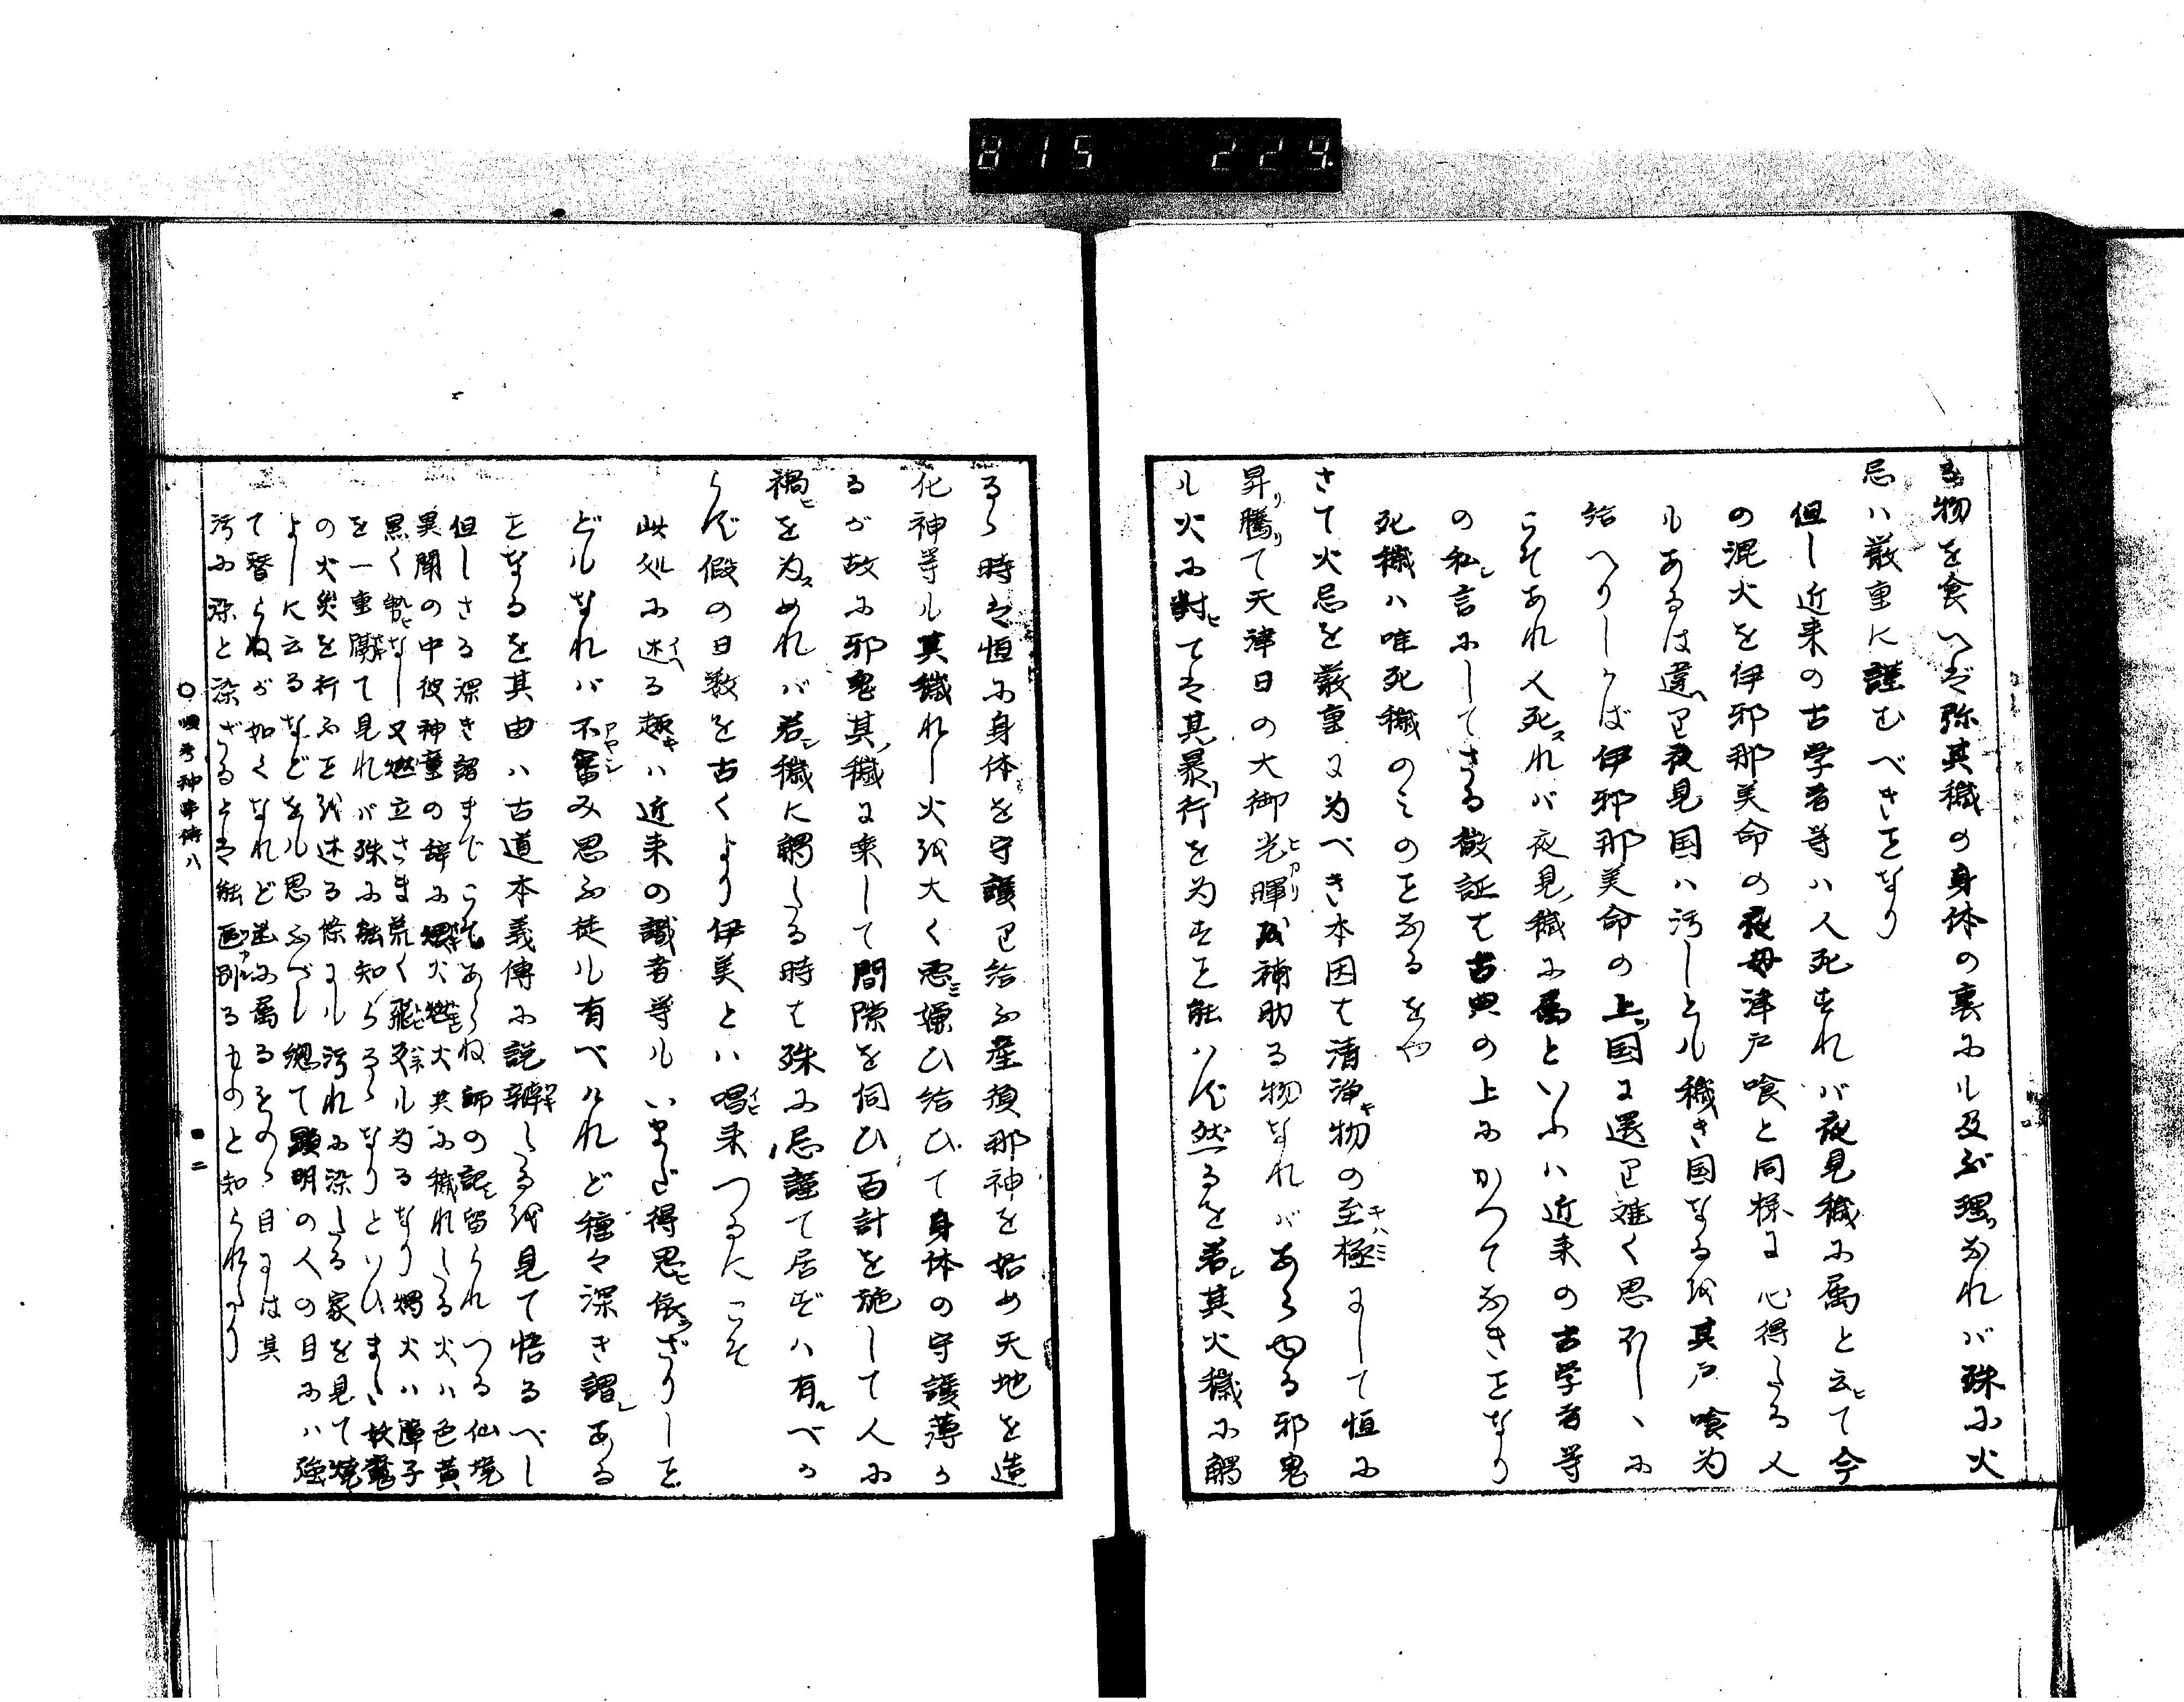 815 229.
る物を食へば弥其穢の身体の裏にも及ぶ理なれバ殊に火
忌ハ厳重に謹むべきことなり
但し近来の古学者等ハ人死すれバ夜見穢に属と云て今
の混火を伊邪那美命の夜母津戸喰と同様に心得たる人
もあるは違へり夜見国ハ汚しとも穢き国なるを其戸喰為
給へりしかば伊邪那美命の上ツ国に還り難く思ほしゝに
こそあれ人死れバ夜見ノ穢に属といふハ近来の古学者等
の私言にしてさる徴証は古典の上にかつてなきことなり
死穢ハ唯死穢のみのことなるをや
さて火忌を厳重に為べき本因は清浄物の至極にして恒に
昇り騰りて天津日の大御光暉を補助る物なれバあらゆる邪鬼
も火に対ては其暴行を為すこと能ハず然るを若其火穢に觸
るゝ時は恒に身体を守護り給ふ産須那神を始め天地を造
化神等も其穢れし火を大く悪嫌ひ給ひて身体の守護薄か
るが故に邪鬼其ノ穢に乗して間隙を伺ひ百計を施して人に
禍を為めれバ若穢に觸たる時は殊に忌謹て居ずハ有べか
らず假の日数を古くより伊美とハ唱来つるにこそ
此処に述る趣ハ近来の識者等もいまだ得思依ざりしこと
どもなれバ不審み思ふ徒も有べけれど種々深き謂ある
ことなるを其由ハ古道本義傳に説辨たるを見て悟るべし
但しさる深き謂までこそあらね師の記留られつる仙境
異聞の中彼神童の辞に燭火燃火共に穢れたる火ハ色黄
黒く勢なし又燃立さま荒く飛炎も為るなり燭火ハ障子
を一重隔て見れバ殊に能知らるゝなりといひまた故鴬
の火災を行ふことを述る條にも汚れに染たる家を見て焼
よしに云るなどをも思ふべし總て顕明の人の目にハ強
て替らぬが如くなれど幽に属るものゝ目には其
汚に染と染ざるとは能区別るものと知られたり
○顕考神事傳八
●二